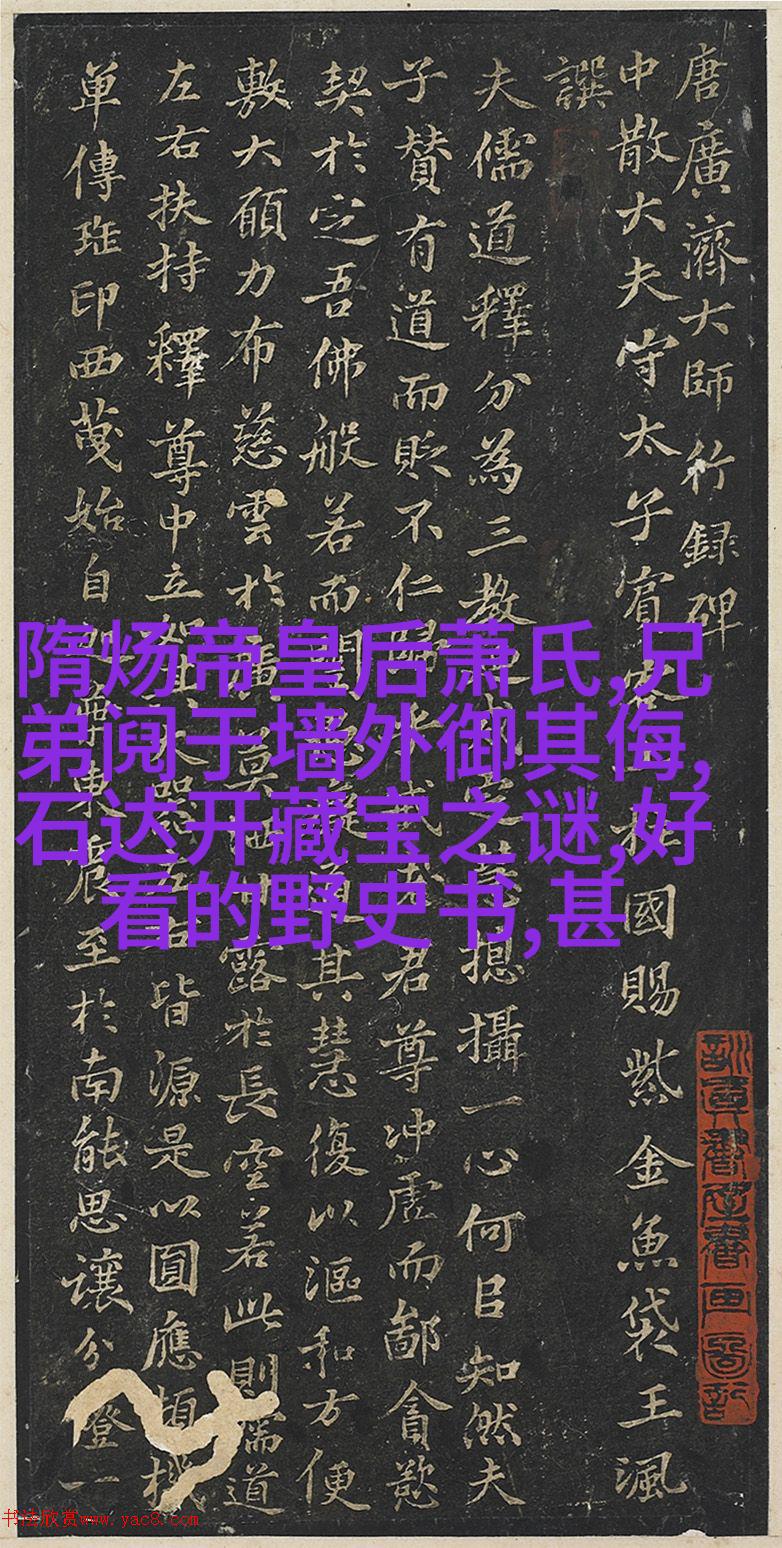 唐廣濟大師行録碑
中散大夫守太子賓國賜紫金魚袋王渢
譔
夫儒道釋分為三教揔攝一心何㠯知然夫
子賛有道而貶不仁君尊冲虛而鄙貪慾
契於定吾佛般若而其慧復以漚和方便
敷大願力布慈雲於露於長空若此則儒道
左右扶持釋尊中立皆源是以圓應頓機
单傳印西始自東震至於南能思讓分燈一
隋炀帝皇后萧氏,兄
弟阋于墙外御其侮,
石达开藏宝之谜,好
看的野史书,甚
书法欣赏www.yac8.com